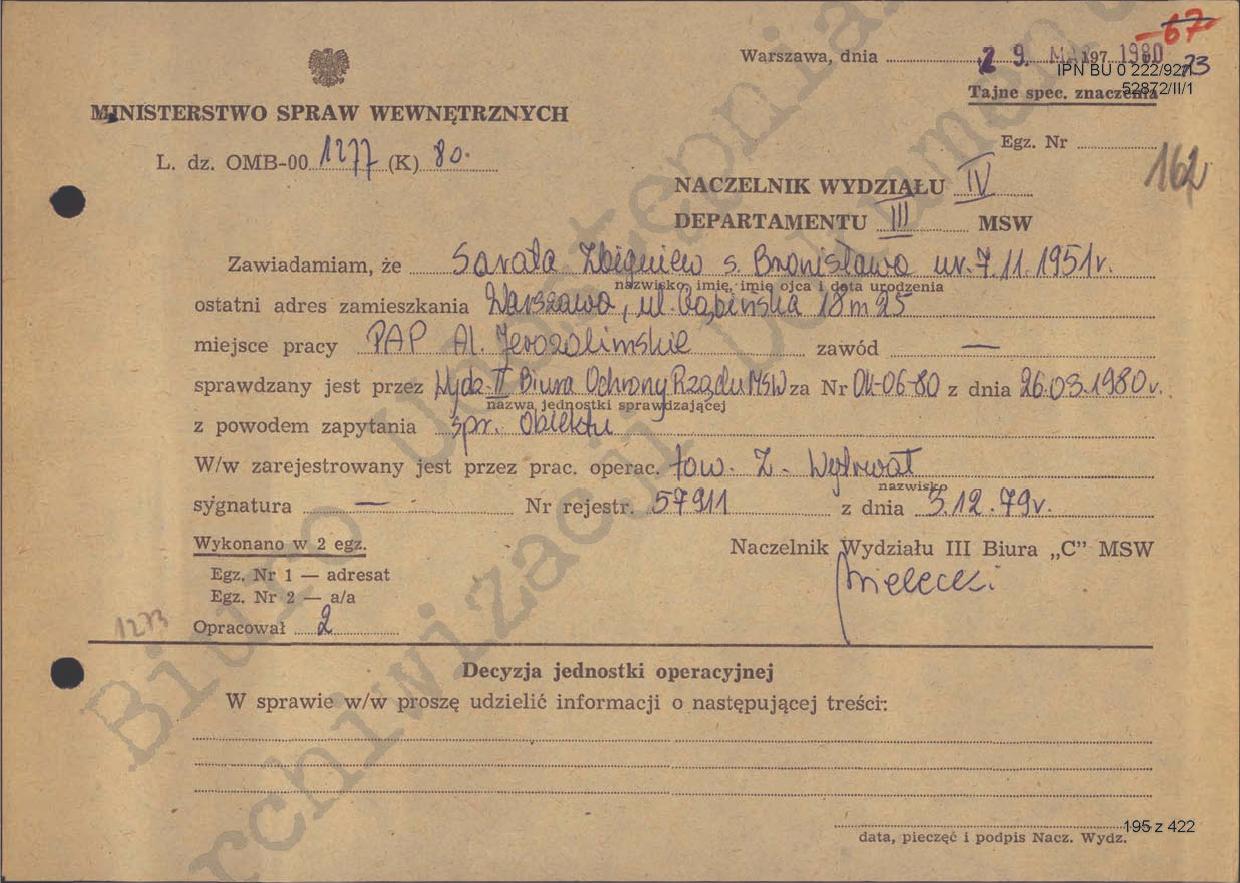 -67-
Warszawa, dnia 29. MAR 197 1980
IPN BU 0 222/927
73
52872/II/1
MINISTERSTWO SPRAW WEWNĘTRZNYCH
Tajne spec. znaczenia
L. dz. OMB-00 1277 (K) 80.
Egz. Nr
162
NACZELNIK WYDZIAŁU IV
DEPARTAMENTU III MSW
Zawiadamiam, że Sarata Zbigniew s. Bronisława ur. 7.11.1951r.
nazwisko, imię, imię ojca i data urodzenia
ostatni adres zamieszkania Warszawa, ul. Gąbińska 18 m 25
miejsce pracy PAP Al. Jerozolimskie zawód —
sprawdzany jest przez Wydz. II Biura Ochrony Rządu MSW za Nr 04-06-80 z dnia 26.03.1980r.
nazwa jednostki sprawdzającej
z powodem zapytania spr. obiektu
W/w zarejestrowany jest przez prac. operac. tow. Z.
nazwisko
sygnatura — Nr rejestr. 57911 z dnia 3.12.79r.
Wykonano w 2 egz.
Naczelnik Wydziału III Biura „C” MSW
Egz. Nr 1 — adresat
Egz. Nr 2 — a/a
1273
Opracował 2
Decyzja jednostki operacyjnej
W sprawie w/w proszę udzielić informacji o następującej treści:
195 z 422
data, pieczęć i podpis Nacz. Wydz.
Biuro Udostępniania
Archiwizacji Dokumentów